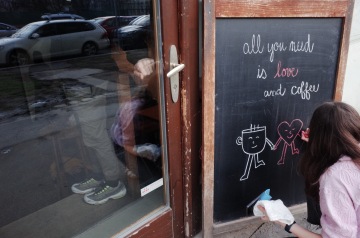 all you need
is love
and coffee